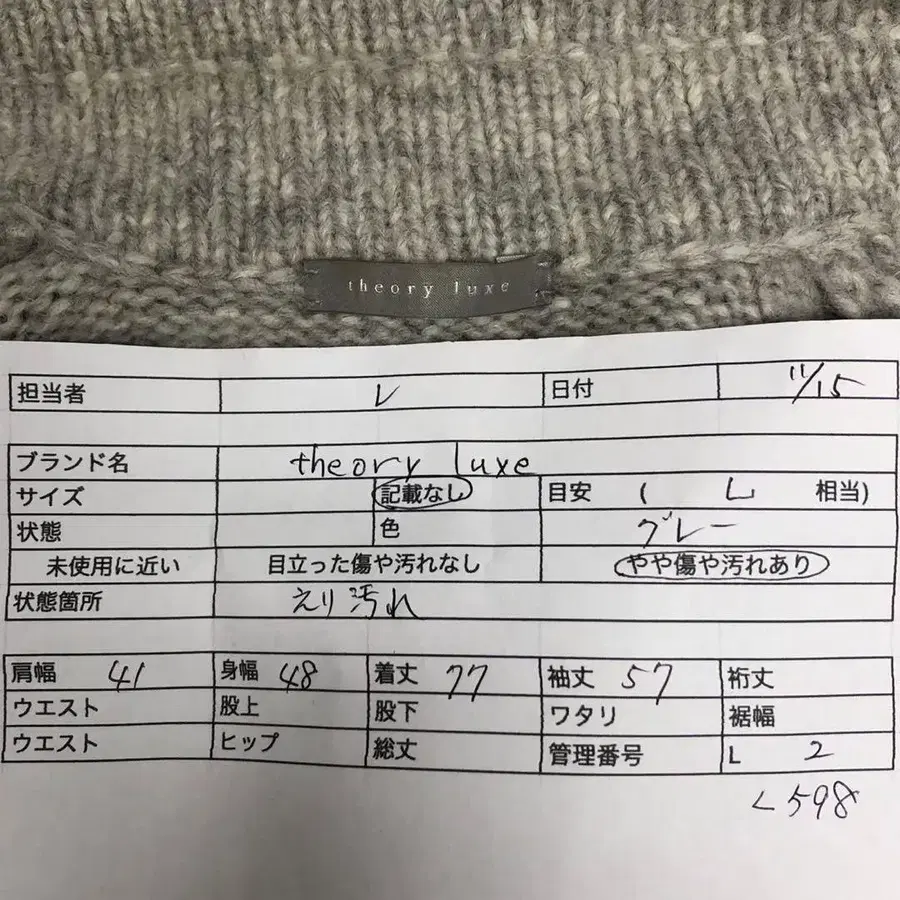 theory luxe
担当者 レ 日付 11/15
ブランド名 theory luxe
サイズ 記載なし 目安 ( L 相当)
状態 色 グレー
未使用に近い 目立った傷や汚れなし やや傷や汚れあり
状態箇所 えり汚れ
肩幅 41 身幅 48 着丈 77 袖丈 57 裄丈
ウエスト 股上 股下 ワタリ 裾幅
ウエスト ヒップ 総丈 管理番号 L 2
598